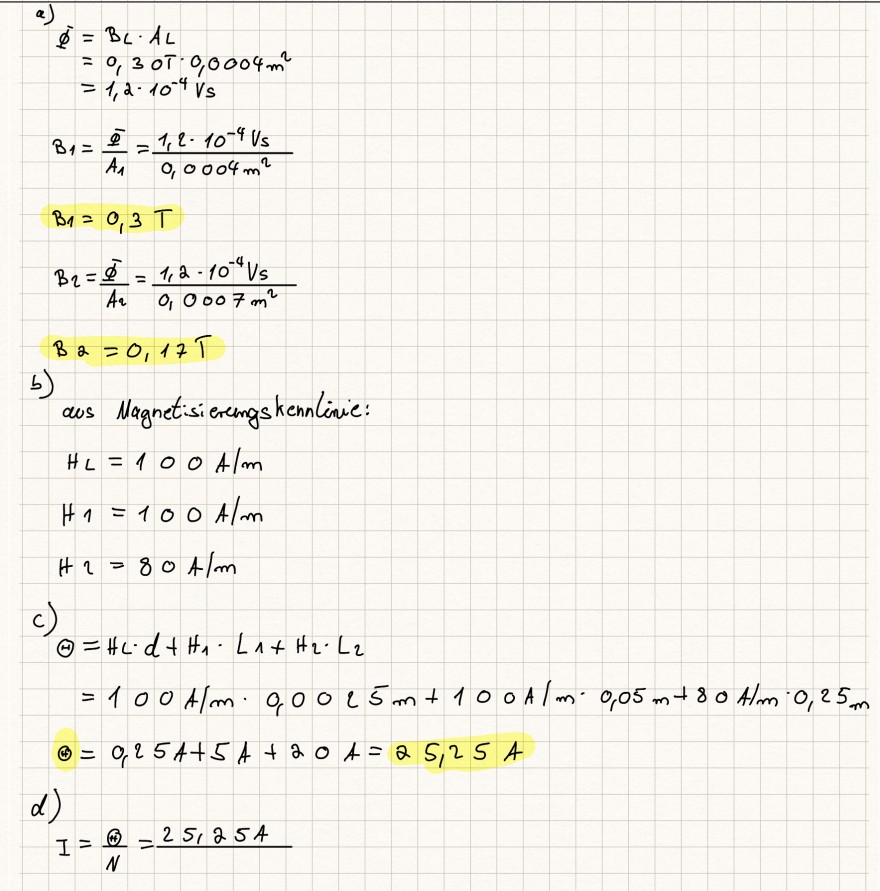 a)
Φ = BL · AL
= 0,30T · 0,0004m²
= 1,2 · 10⁻⁴ Vs
B1 = Φ/A1 = 1,2 · 10⁻⁴ Vs / 0,0004m²
B1 = 0,3 T
B2 = Φ/A2 = 1,2 · 10⁻⁴ Vs / 0,0007m²
B2 = 0,17T
b)
aus Magnetisierungskennlinie:
HL = 100 A/m
H1 = 100 A/m
H2 = 80 A/m
c)
Θ = HL · d + H1 · L1 + H2 · L2
= 100 A/m · 0,0025m + 100 A/m · 0,05m + 80 A/m · 0,25m
Θ = 0,25A + 5A + 20A = 25,25 A
d)
I = Θ/N = 25,25A